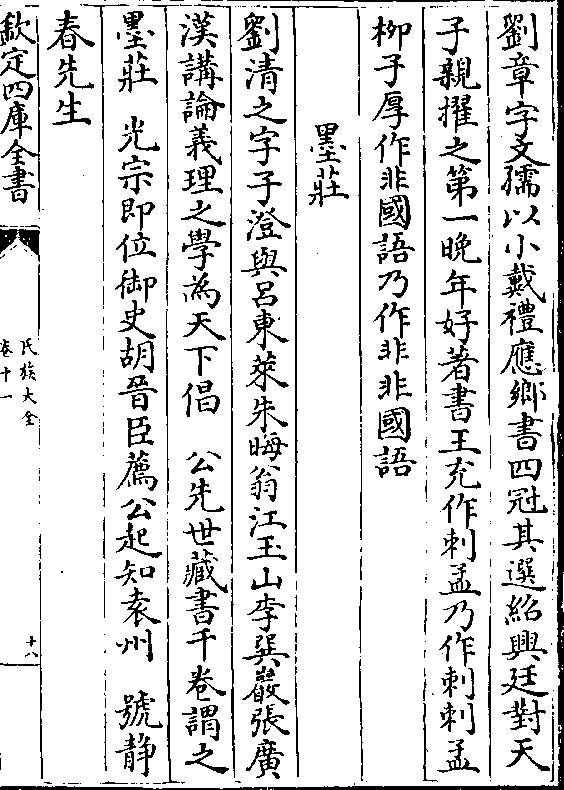 劉章字文孺以小戴禮應鄉書四冠其選紹興廷對天
子親擢之第一晩年好著書王充作刺孟乃作刺刺孟
柳子厚作非國語乃作非非國語
墨莊
劉清之字子澄與呂東萊朱晦翁江玉山李巽巖張廣
漢講論義理之學為天下倡　公先世藏書千卷謂之
墨莊　光宗即位御史胡晉臣薦公起知袁州　號静
春先生
欽定四庫全書
氏族大全
卷十一
十八